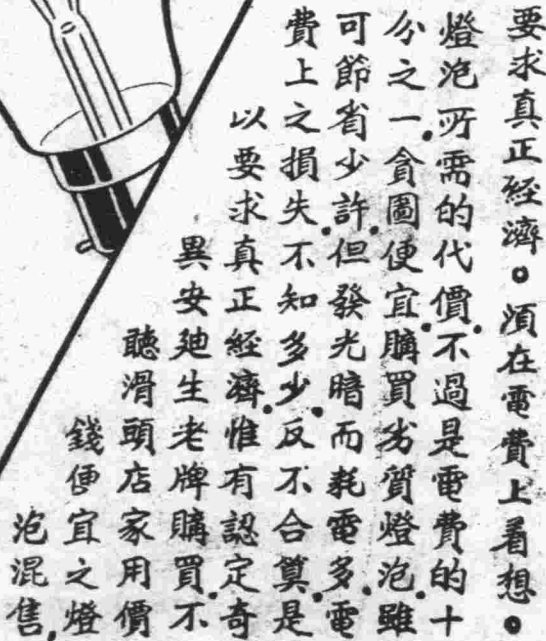 要求真正經濟。須在電費上着想。
燈泡所需的代價.不過是電費的十
分之一.貪圖便宜.購買劣質燈泡.雖
可節省少許.但發光暗而耗電多.電
費上之損失.不知多少.反不合算.是
以要求真正經濟.惟有認定奇
異安廸生老牌購買.不
聽滑頭店家用價
錢便宜之燈
泡混售.